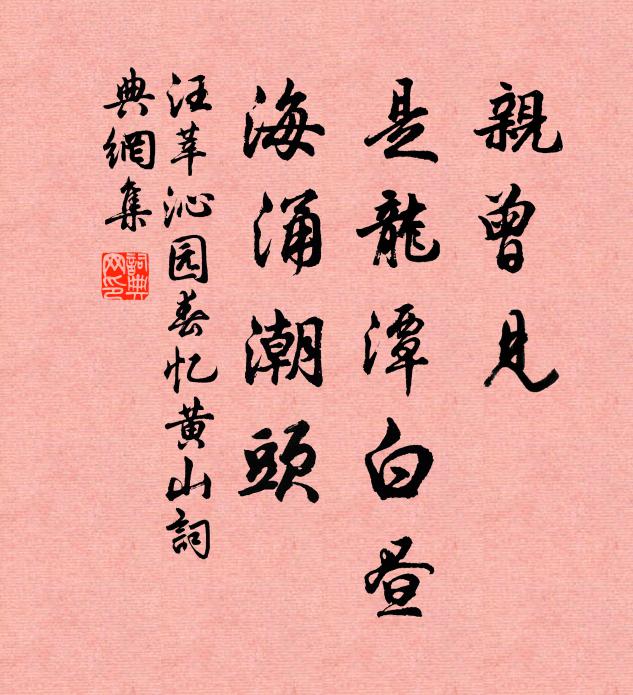 親曾見
是龍潭白晝
海涌潮頭
汪莘沁园春忆黄山詞
典網集
詞典
网印